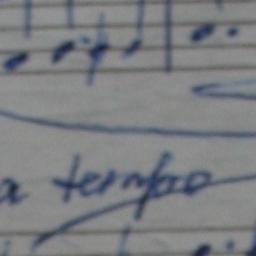 a tempo